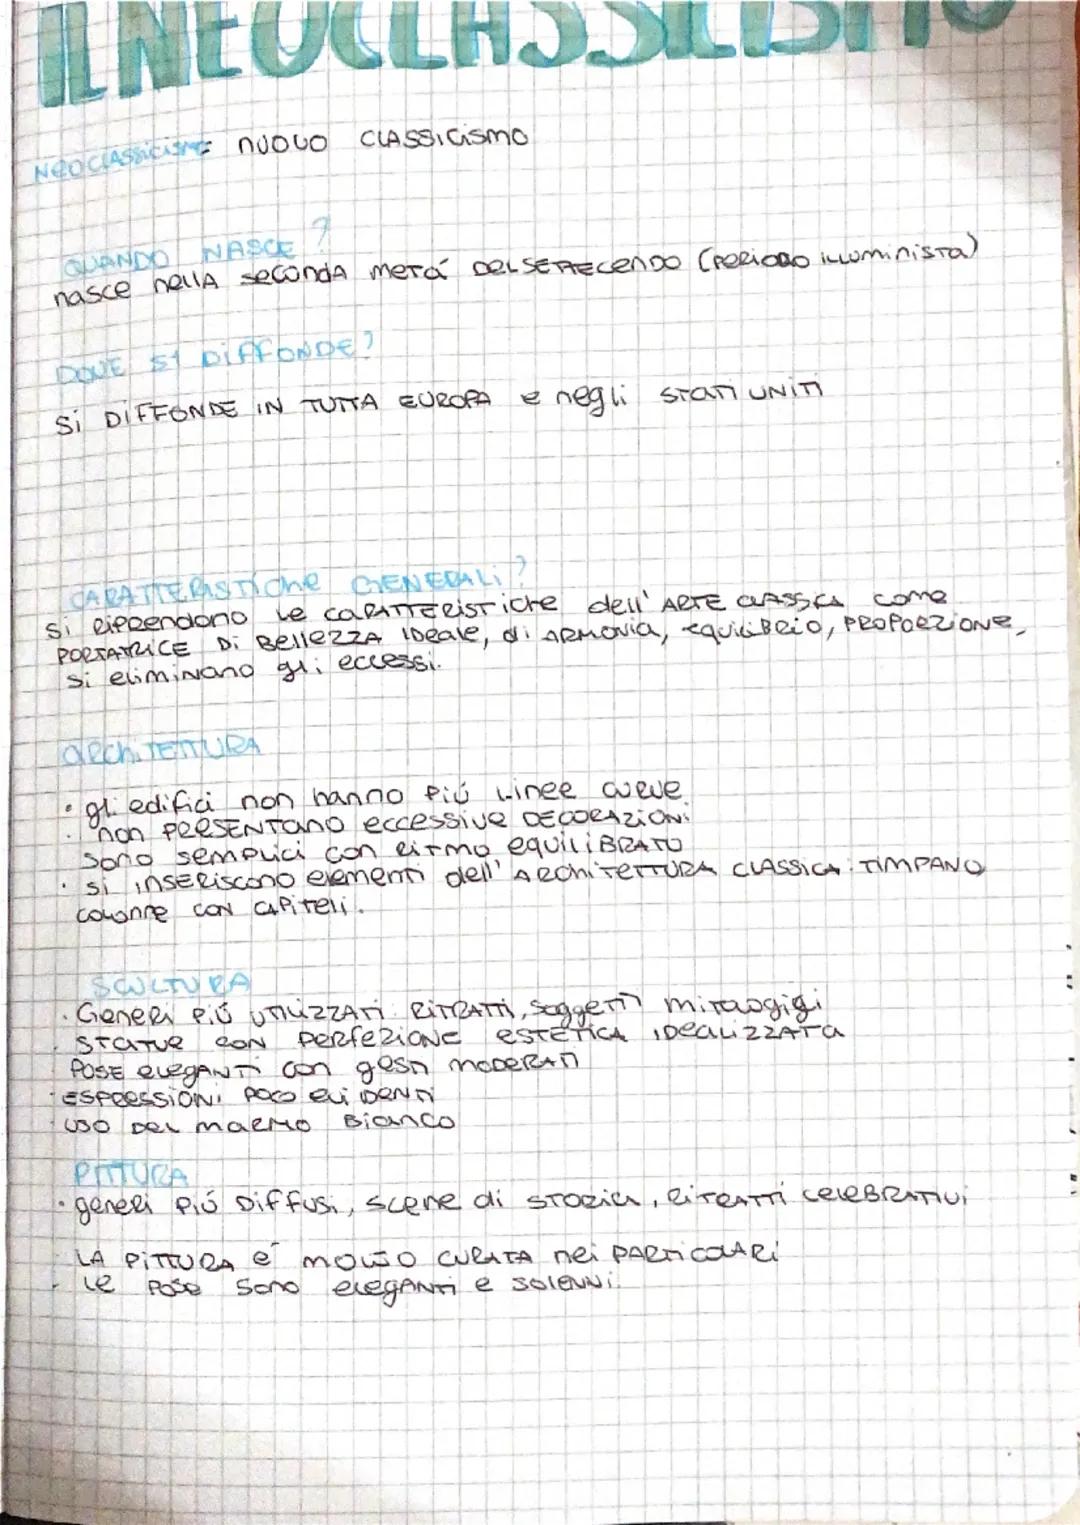 IL NEOCLASSICISMO
NEOCLASSICISMO: NUOVO CLASSICISMO
QUANDO NASCE?
nasce nella seconda metá DEL SETTECENDO (PERIODO ILLUMINISTA)
DOVE SI DIFFONDE?
Si DIFFONDE IN TUTTA EUROPA e negli STATI UNITI
CARATTERISTICHE GENERALI?
Si RIPRENDONO LE CARATTERISTICHE dell'ARTE CLASSICA come
PORTATRICE Di BELLEZZA IDEALE, di ARMONIA, EQUILIBRIO, PROPORZIONE,
Si ELIMINANO gli eccessi.
ARCHITETTURA
• gli edifici non hanno PIÚ LINEE CURVE
• non PRESENTANO eccessive DECORAZIONI
SONO SEMPLICI con RITMO EQUILIBRATO
• Si INSERISCONO elementi dell'ARCHITETTURA CLASSICA: TIMPANO
COLONNE CON CAPITELLI.
SCULTURA
• GENERI PIÚ UTILIZZATI RITRATTI, SOGGETTI mitologigi
• STATUE CON PERFEZIONE ESTETICA IDEALIZZATA
POSE ELEGANTI con gesti MODERATI
• ESPRESSIONI POCO EVIDENTI
• USO DEL MARMO BIANCO
PITTURA
• generi PIÚ DIFFUSI, SCENE di STORIA, RITRATTI CELEBRATIVI
• LA PITTURA É MOLTO CURATA nei PARTICOLARI
• LE POSE SONO ELEGANTI e SOLENNI.